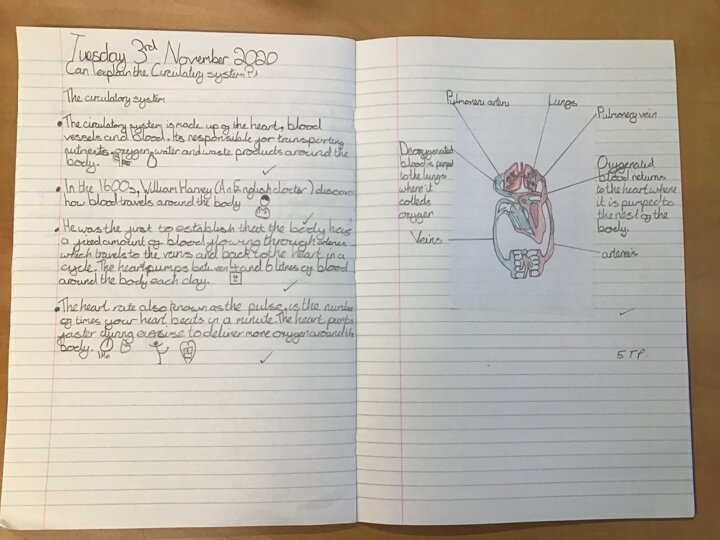 Tuesday 3rd November 2020
Can I explain the Circulatory system(?)
The circulatory system
• The circulatory system is made up of the heart, blood
vessels and blood. Its responsible for transporting
nutrients, oxygen, water and waste products around the
body.
• In the 1600s, William Harvey (An English doctor) discover
how blood travels around the body
• He was the first to establish that the body has
a fixed amount of blood flowing through arteries
which travels to the veins and back to the heart in a
cycle. The heart pumps between 4 and 6 litres of blood
around the body each day.
• The heart rate also known as the pulse, is the number
of times your heart beats in a minute. The heart pumps
faster during exercise to deliver more oxygen around the
body.
1 Min
Pulmonery artery
Lungs
Pulmonery vein
Deoxygenated
blood is pumped
to the lungs
where it
collects
oxygen
Veins
Oxygenated
blood returns
to the heart where
it is pumped to
the rest of the
body.
arteries
5 TP